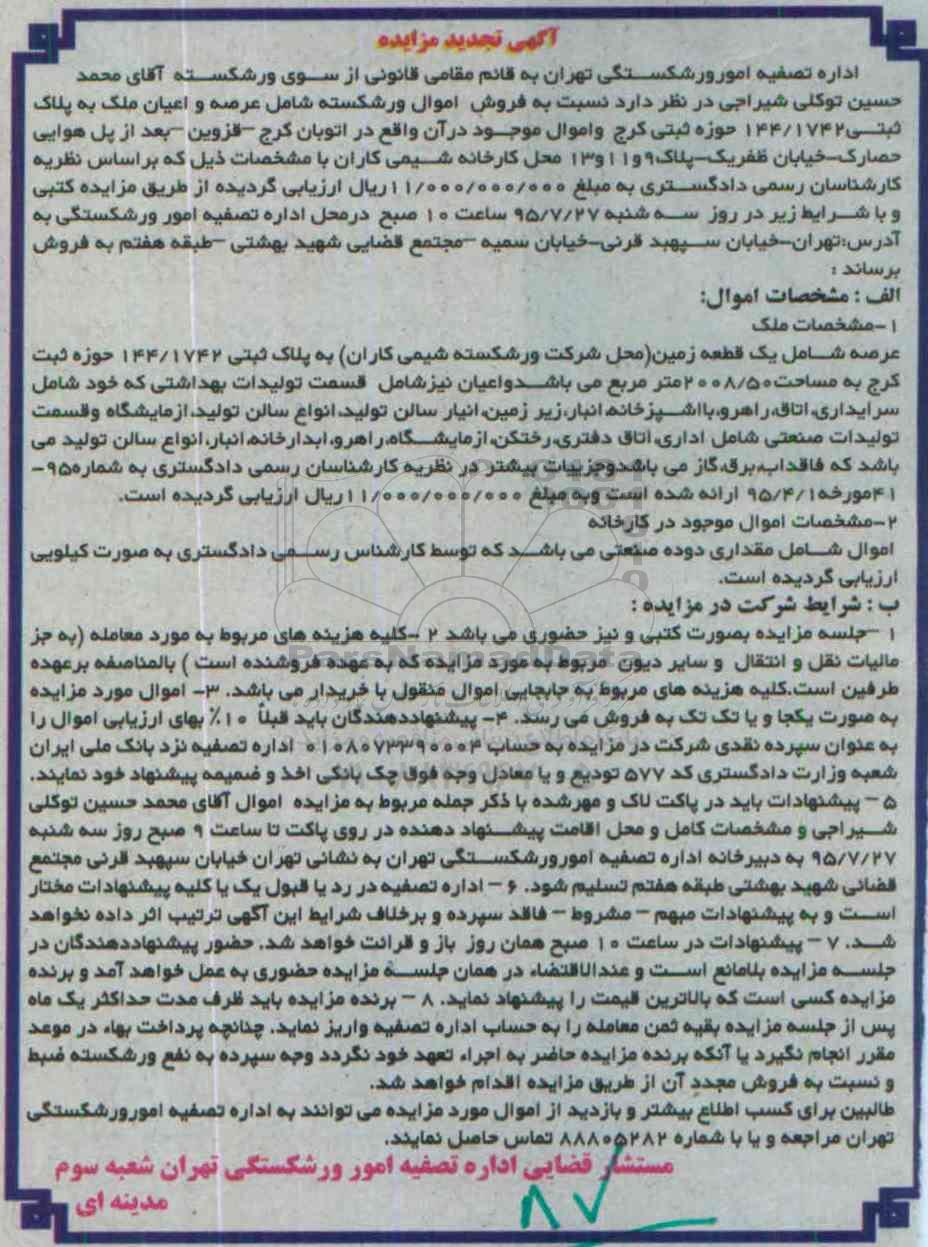 آگهی تجدید مزایده
اداره تصفیه امورورشکستگی تهران به قائم مقامی قانونی از سوی ورشکسته آقای محمد
حسین توکلی شیراجی در نظر دارد نسبت به فروش اموال ورشکسته شامل عرصه و اعیان ملک به پلاک
ثبتی۱۴۴/۱۷۴۲ حوزه ثبتی کرج واموال موجود درآن واقع در اتوبان کرج –قزوین –بعد از پل هوایی
حصارک–خیابان ظفریک–پلاک۹و۱۱و۱۳ محل کارخانه شیمی کاران با مشخصات ذیل که براساس نظریه
کارشناسان رسمی دادگستری به مبلغ ۱۱/۰۰۰/۰۰۰/۰۰۰ریال ارزیابی گردیده از طریق مزایده کتبی
و با شرایط زیر در روز سه شنبه ۹۵/۷/۲۷ ساعت ۱۰ صبح درمحل اداره تصفیه امور ورشکستگی به
آدرس:تهران–خیابان سپهبد قرنی–خیابان سمیه –مجتمع قضایی شهید بهشتی –طبقه هفتم به فروش
برساند :
الف : مشخصات اموال:
۱–مشخصات ملک
عرصه شامل یک قطعه زمین(محل شرکت ورشکسته شیمی کاران) به پلاک ثبتی ۱۴۴/۱۷۴۲ حوزه ثبت
کرج به مساحت۲۰۰۸/۵۰متر مربع می باشدواعیان نیزشامل قسمت تولیدات بهداشتی که خود شامل
سرایداری،اتاق،راهرو،بااشپزخانه،انبار،زیر زمین،انبار سالن تولید،انواع سالن تولید،ازمایشگاه وقسمت
تولیدات صنعتی شامل اداری،اتاق دفتری،رختکن،ازمایشگاه،راهرو،ابدارخانه،انبار،انواع سالن تولید می
باشد که فاقداب،برق،گاز می باشدوجزییات بیشتر در نظریه کارشناسان رسمی دادگستری به شماره۹۵–
۴۱مورخه۹۵/۴/۱ ارائه شده است وبه مبلغ ۱۱/۰۰۰/۰۰۰/۰۰۰ریال ارزیابی گردیده است.
۲–مشخصات اموال موجود در کارخانه
اموال شامل مقداری دوده صنعتی می باشد که توسط کارشناس رسمی دادگستری به صورت کیلویی
ارزیابی گردیده است.
ب : شرایط شرکت در مزایده :
۱ –جلسه مزایده بصورت کتبی و نیز حضوری می باشد ۲ –کلیه هزینه های مربوط به مورد معامله (به جز
مالیات نقل و انتقال و سایر دیون مربوط به مورد مزایده که به عهده فروشنده است ) بالمناصفه برعهده
طرفین است.کلیه هزینه های مربوط به جابجایی اموال منقول با خریدار می باشد. ۳– اموال مورد مزایده
به صورت یکجا و یا تک تک به فروش می رسد. ۴– پیشنهاددهندگان باید قبلاً ۱۰٪ بهای ارزیابی اموال را
به عنوان سپرده نقدی شرکت در مزایده به حساب ۰۱۰۸۰۷۳۳۹۰۰۰۴ اداره تصفیه نزد بانک ملی ایران
شعبه وزارت دادگستری کد ۵۷۷ تودیع و یا معادل وجه فوق چک بانکی اخذ و ضمیمه پیشنهاد خود نمایند.
۵ – پیشنهادات باید در پاکت لاک و مهرشده با ذکر جمله مربوط به مزایده اموال آقای محمد حسین توکلی
شیراجی و مشخصات کامل و محل اقامت پیشنهاد دهنده در روی پاکت تا ساعت ۹ صبح روز سه شنبه
۹۵/۷/۲۷ به دبیرخانه اداره تصفیه امورورشکستگی تهران به نشانی تهران خیابان سپهبد قرنی مجتمع
قضائی شهید بهشتی طبقه هفتم تسلیم شود. ۶ – اداره تصفیه در رد یا قبول یک یا کلیه پیشنهادات مختار
است و به پیشنهادات مبهم – مشروط – فاقد سپرده و برخلاف شرایط این آگهی ترتیب اثر داده نخواهد
شد. ۷ – پیشنهادات در ساعت ۱۰ صبح همان روز باز و قرائت خواهد شد. حضور پیشنهاددهندگان در
جلسه مزایده بلامانع است و عندالاقتضاء در همان جلسه مزایده حضوری به عمل خواهد آمد و برنده
مزایده کسی است که بالاترین قیمت را پیشنهاد نماید. ۸ – برنده مزایده باید ظرف مدت حداکثر یک ماه
پس از جلسه مزایده بقیه ثمن معامله را به حساب اداره تصفیه واریز نماید. چنانچه پرداخت بهاء در موعد
مقرر انجام نگیرد یا آنکه برنده مزایده حاضر به اجراء تعهد خود نگردد وجه سپرده به نفع ورشکسته ضبط
و نسبت به فروش مجدد آن از طریق مزایده اقدام خواهد شد.
طالبین برای کسب اطلاع بیشتر و بازدید از اموال مورد مزایده می توانند به اداره تصفیه امورورشکستگی
تهران مراجعه و یا با شماره ۸۸۸۰۵۲۸۲ تماس حاصل نمایند.
مستشار قضایی اداره تصفیه امور ورشکستگی تهران شعبه سوم
مدینه ای
۸۷
ParsNamadData